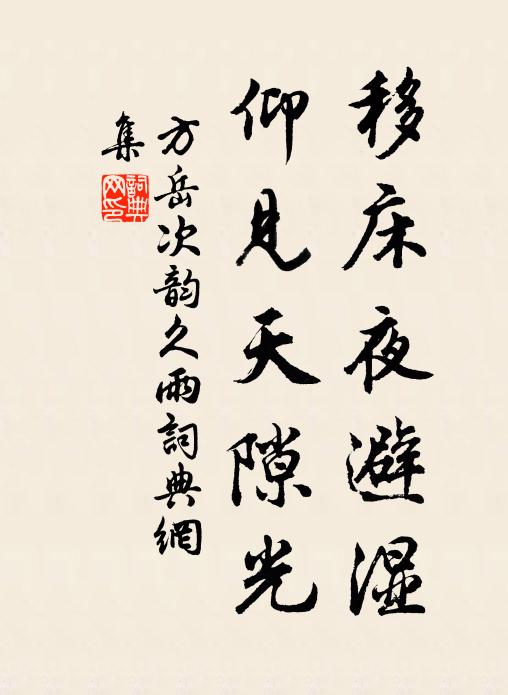 移床夜避湿
仰见天隙光
方岳次韵久雨詞典網
集
詞典網印